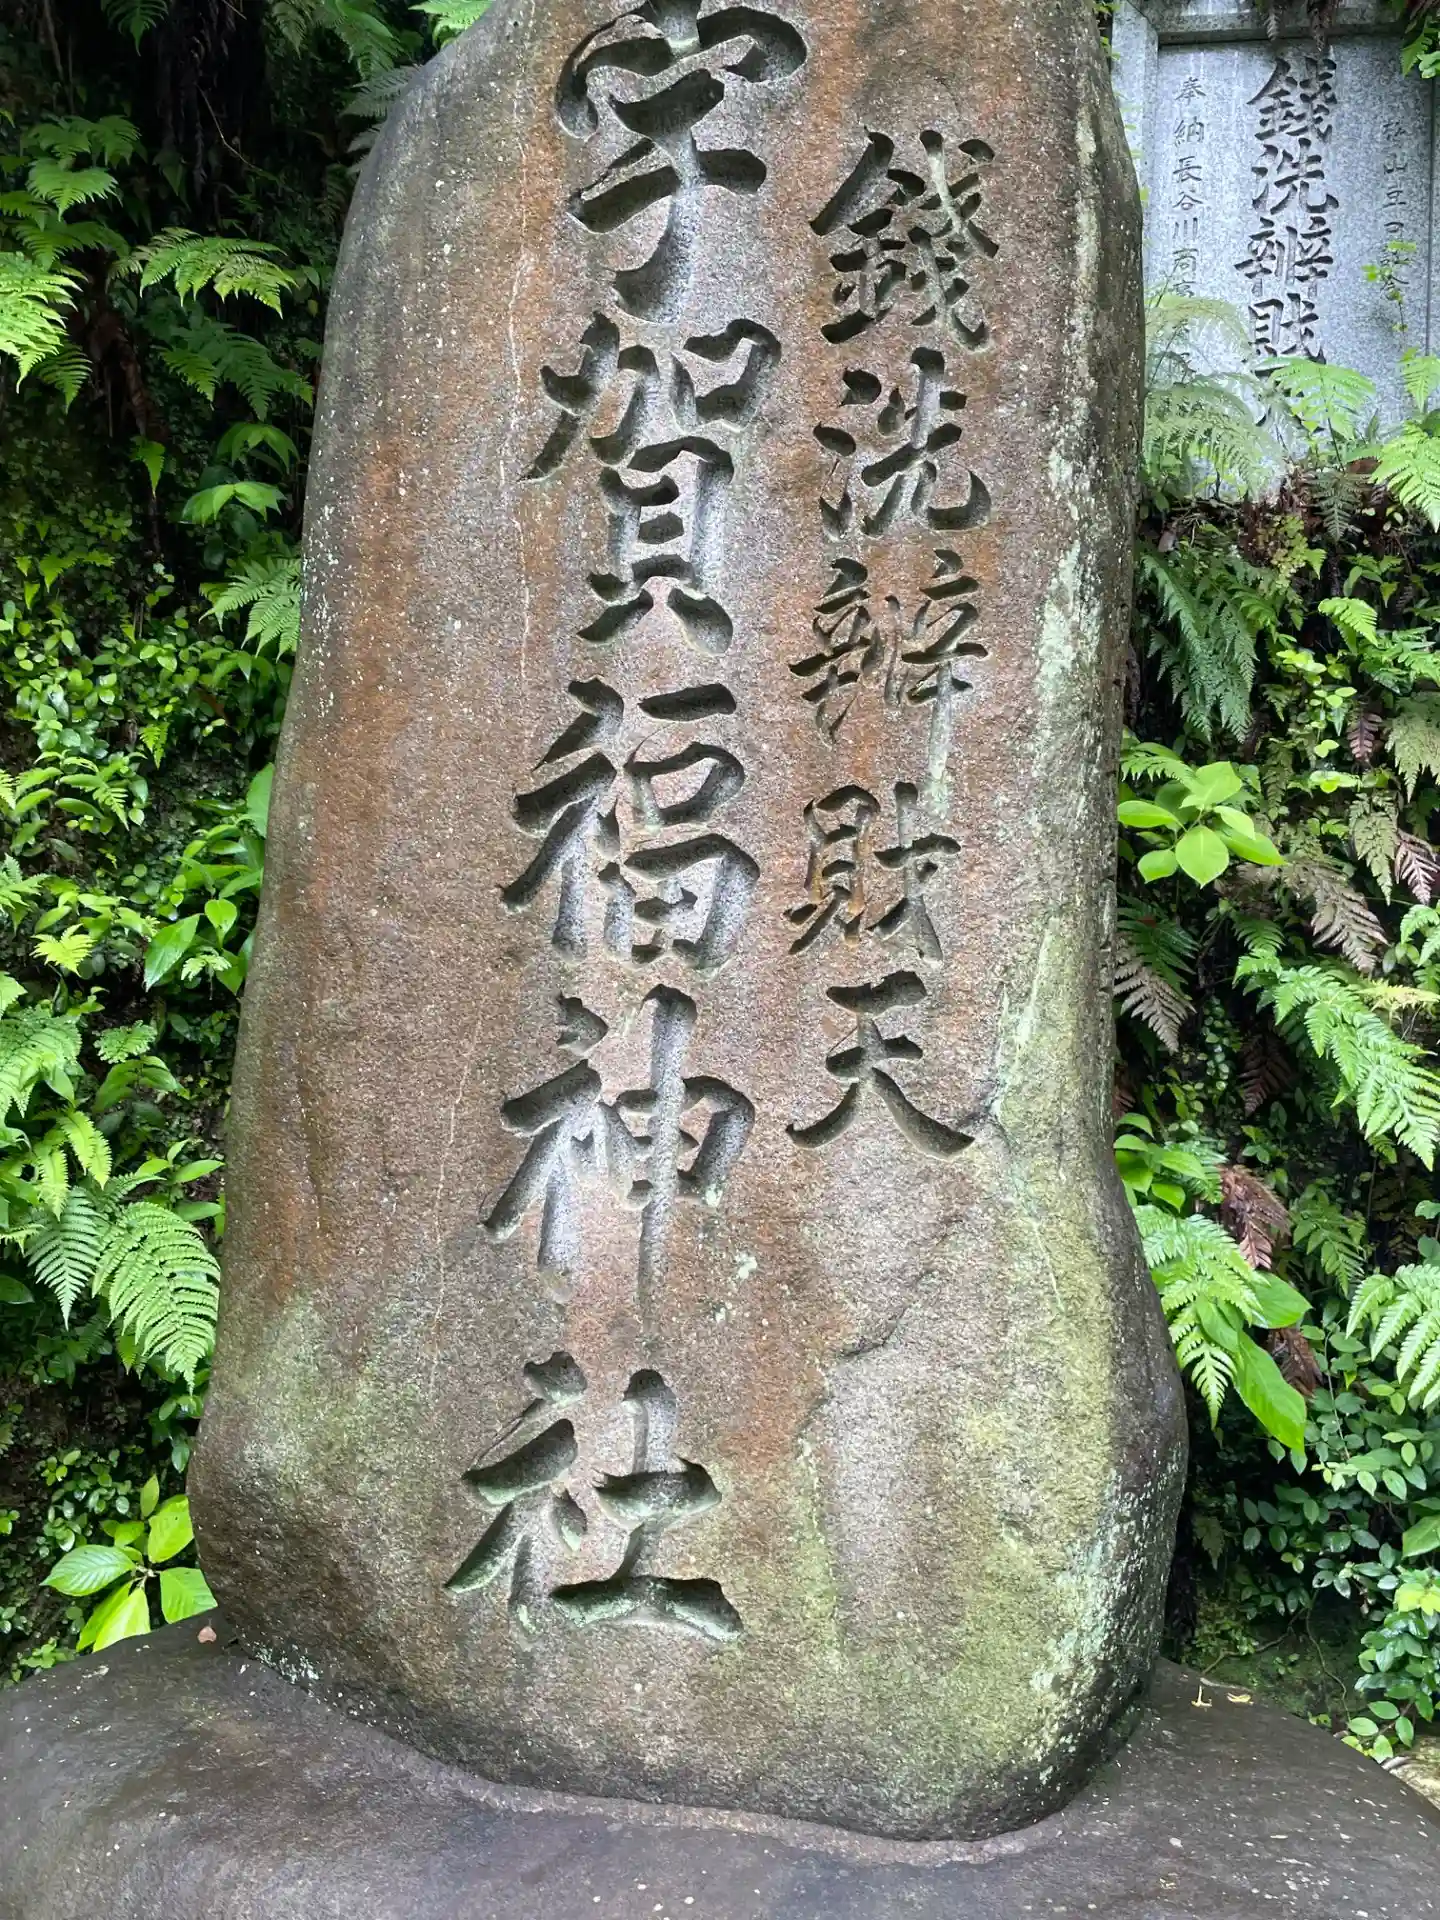 銭洗辨財天
宇賀福神社
銭洗辨財天
奉納長谷川